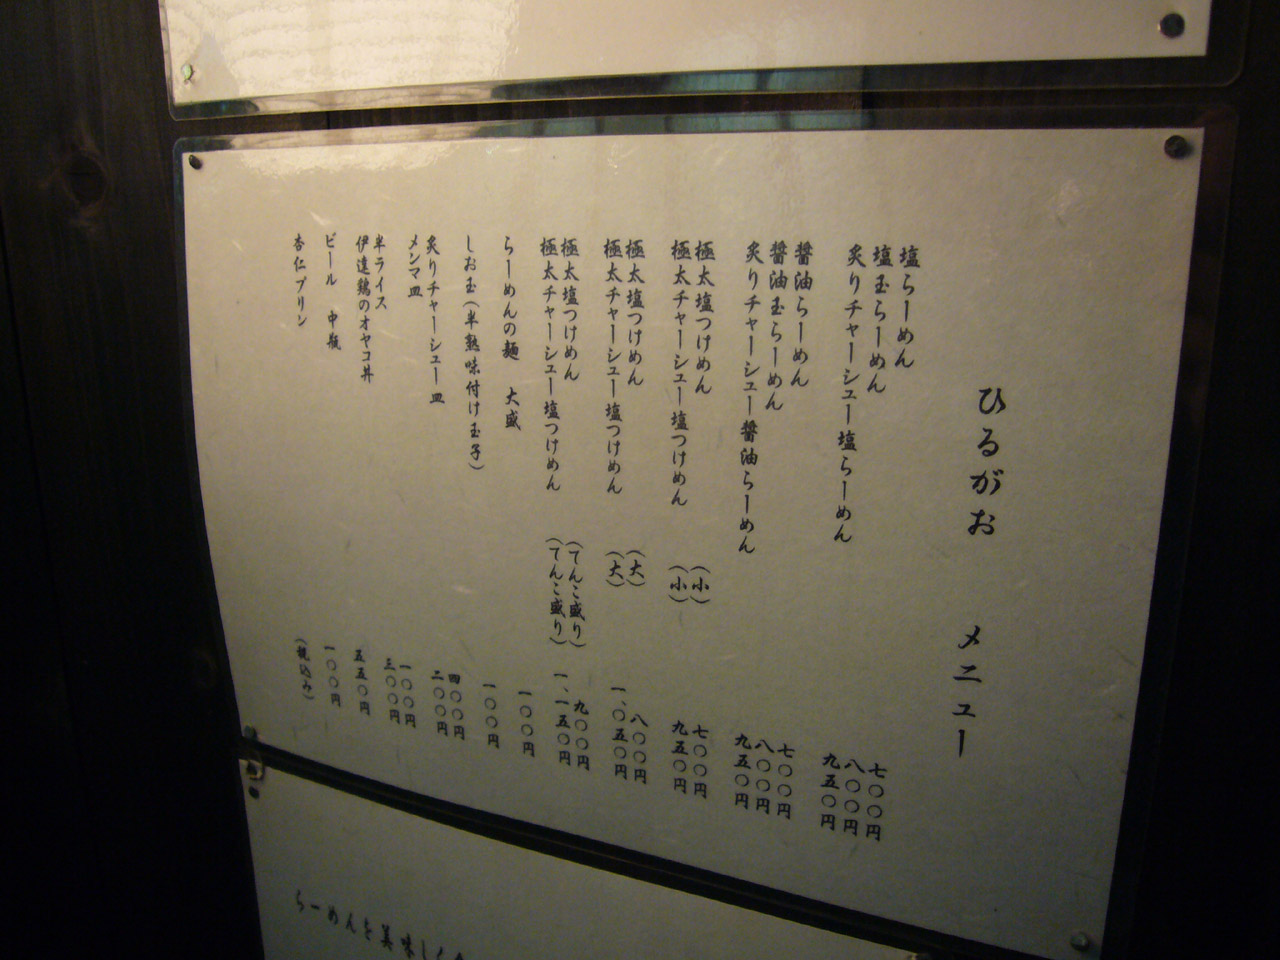 ひるがお　メニュー
塩らーめん　七〇〇円
塩玉らーめん　八〇〇円
炙りチャーシュー塩らーめん　九五〇円
醤油らーめん　七〇〇円
醤油玉らーめん　八〇〇円
炙りチャーシュー醤油らーめん　九五〇円
極太塩つけめん　（小）　七〇〇円
極太チャーシュー塩つけめん　（小）　九五〇円
極太塩つけめん　（大）　八〇〇円
極太チャーシュー塩つけめん　（大）　一、〇五〇円
極太塩つけめん　（てんこ盛り）　九〇〇円
極太チャーシュー塩つけめん　（てんこ盛り）　一、一五〇円
らーめんの麺　大盛　一〇〇円
しお玉（半熟味付け玉子）　一〇〇円
炙りチャーシュー皿　四〇〇円
メンマ皿　二〇〇円
半ライス　一〇〇円
伊達鶏のオヤコ丼　三〇〇円
ビール　中瓶　五五〇円
杏仁プリン　一〇〇円
（税込み）
らーめんを美味しく